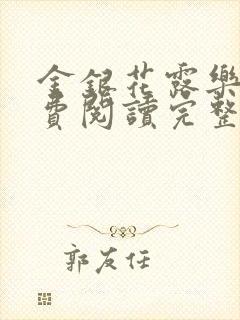 金銀花露樂
費閱讀完整
郭友任